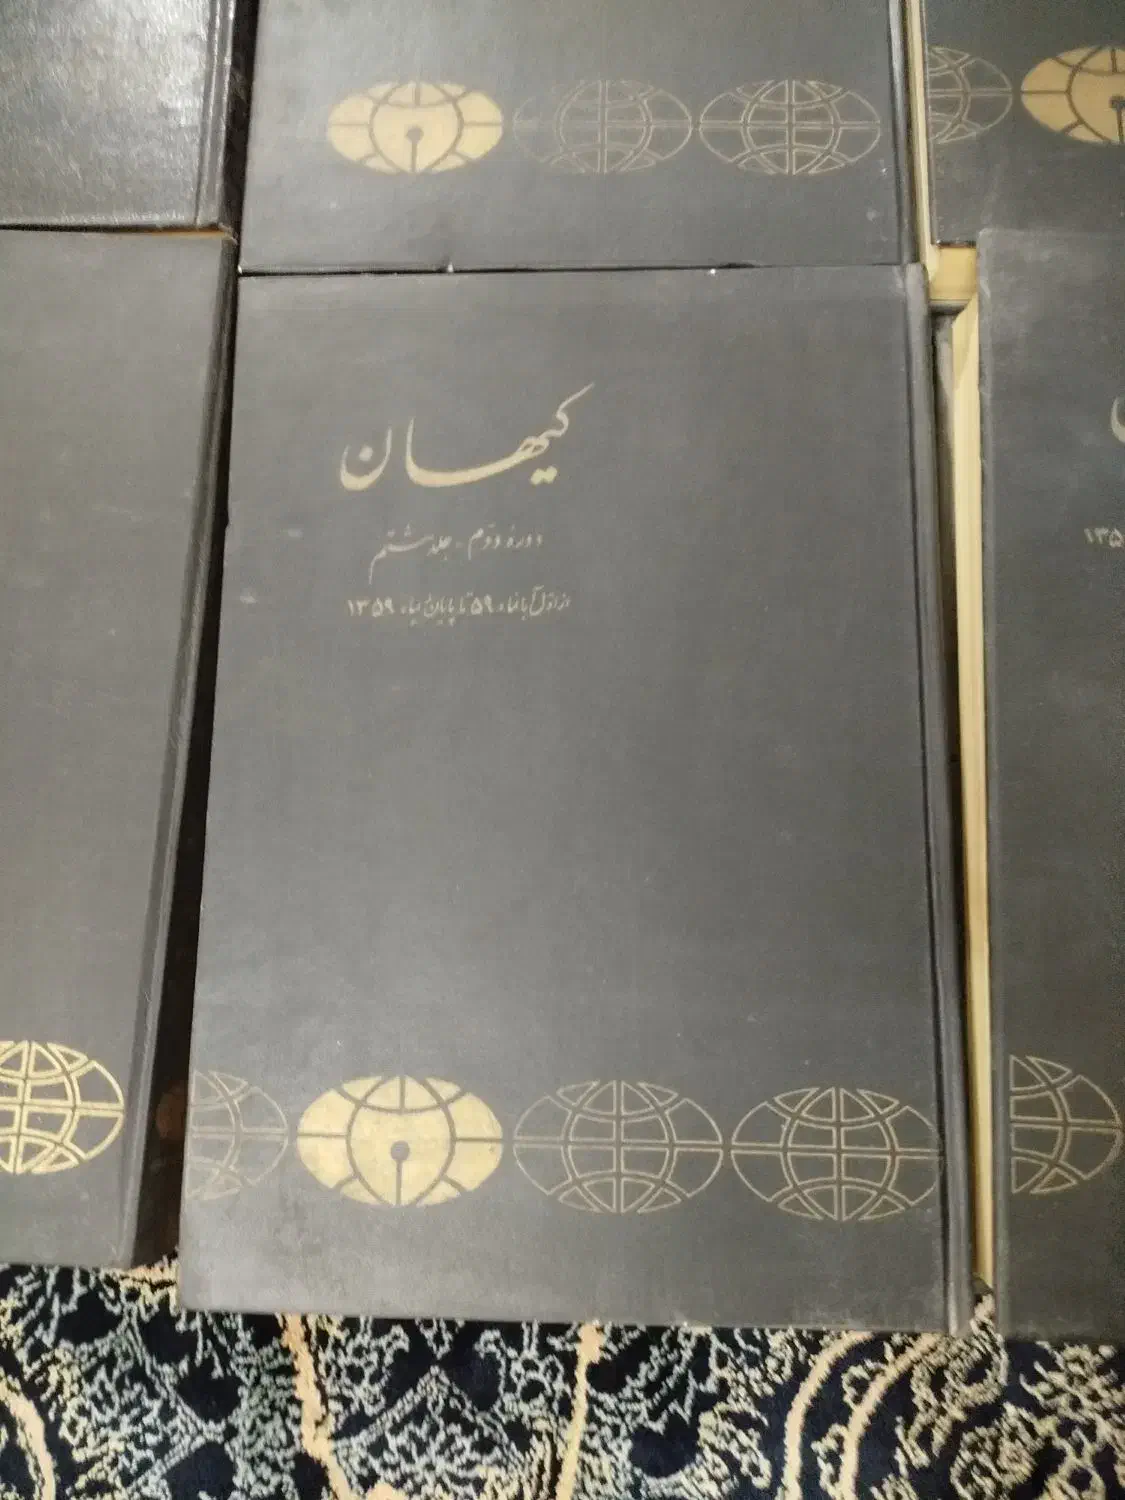 کیهان
دورهٔ دوّم - جلد هشتم
از اوّل آبانماه ۵۹ تا پایان دیماه ۱۳۵۹